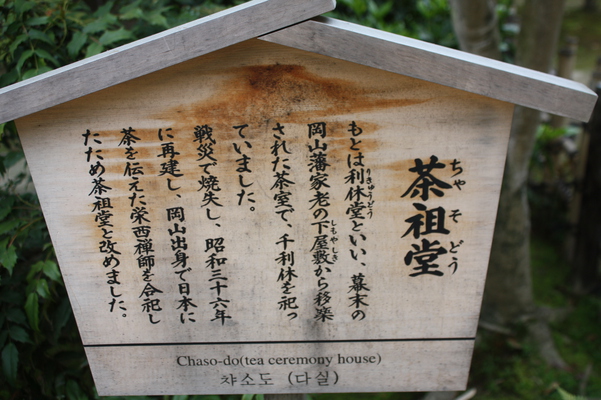 茶祖堂
ちゃそどう
もとは利休堂といい、幕末の
りきゅうどう
岡山藩家老の下屋敷から移築
しもやしき
された茶室で、千利休を祀っ
ていました。
戦災で焼失し、昭和三十六年
に再建し、岡山出身で日本に
茶を伝えた栄西禅師を合祀し
たため茶祖堂と改めました。
Chaso-do(tea ceremony house)
챠소도 (다실)